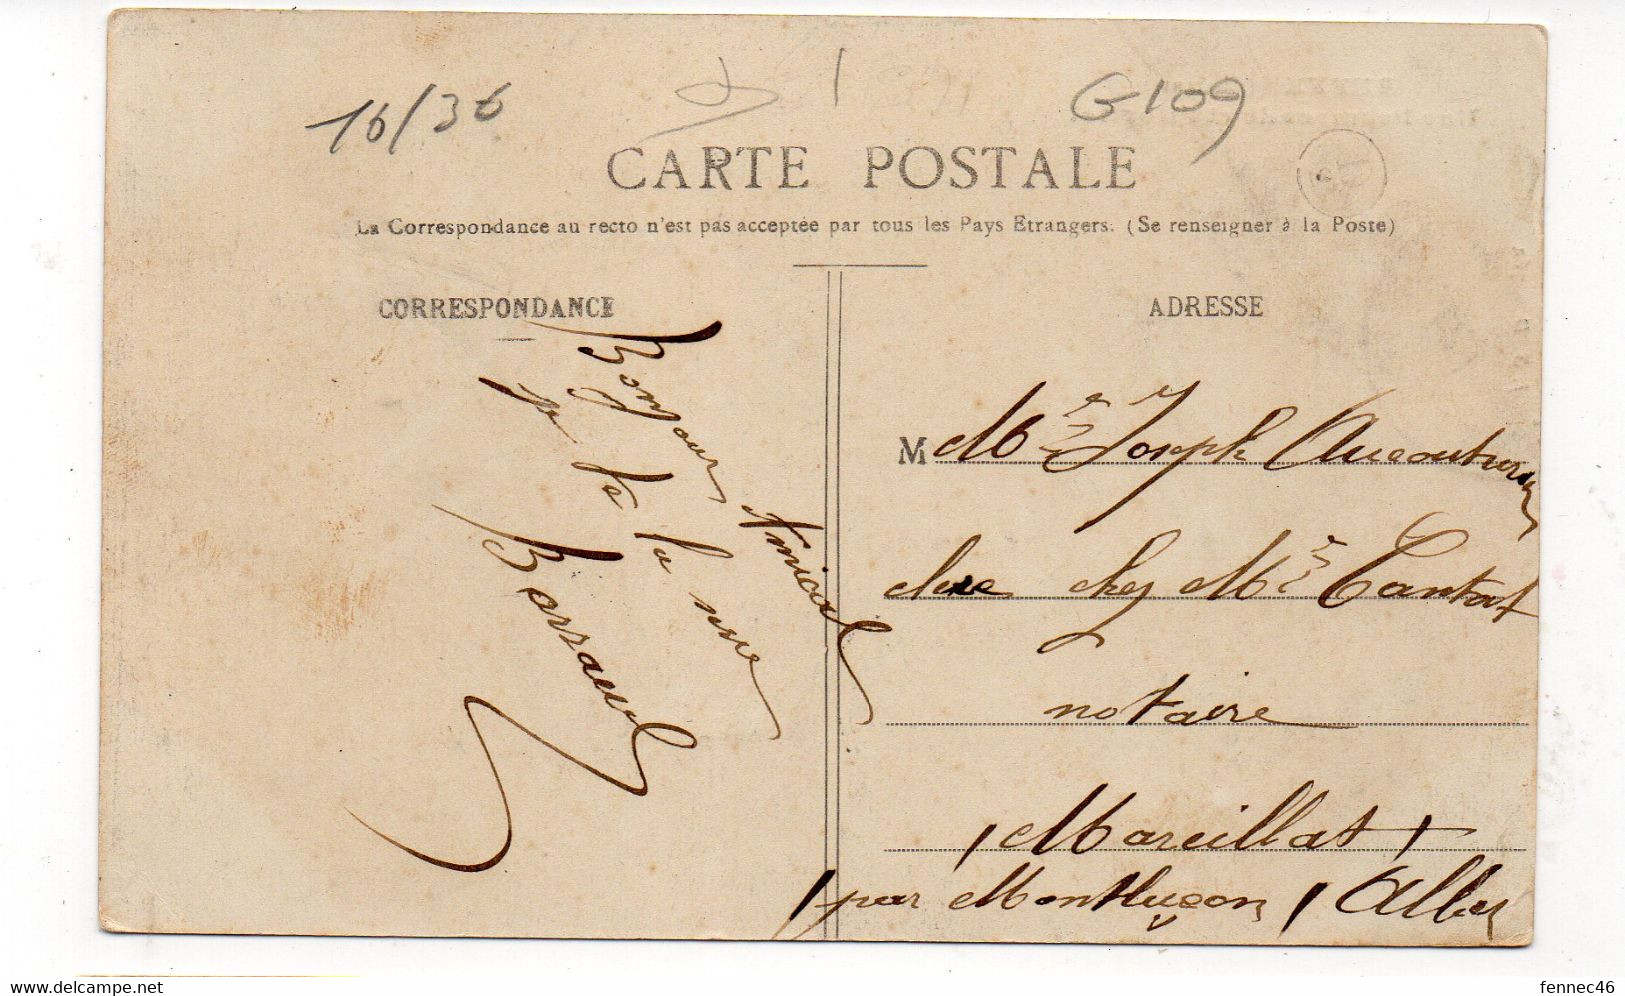 16/36
1
G109
CARTE POSTALE
La Correspondance au recto n'est pas acceptée par tous les Pays Etrangers. (Se renseigner à la Poste)
CORRESPONDANCE
Bonjour Amical
je te la serre
Barraud
ADRESSE
M Mr Joseph Aucouturier
clerc chez Me Tantot
notaire
Marcillat
par Montluçon Allier
www.delcampe.net
fennec46